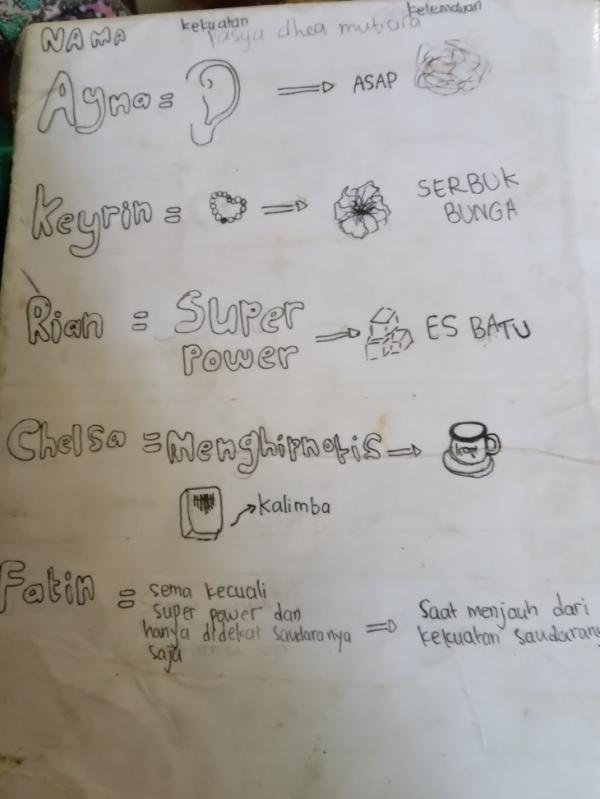 NAMA kekuatan kelemahan
tasya dhea mutiara
Ayna = ASAP
Keyrin = SERBUK
BUNGA
Rian = Super
Power ES BATU
Chelsa = Menghipnotis kopi
Kalimba
Fatin = sema kecuali
super power dan
hanya didekat saudaranya
saja
Saat menjauh dari
kekuatan saudarany